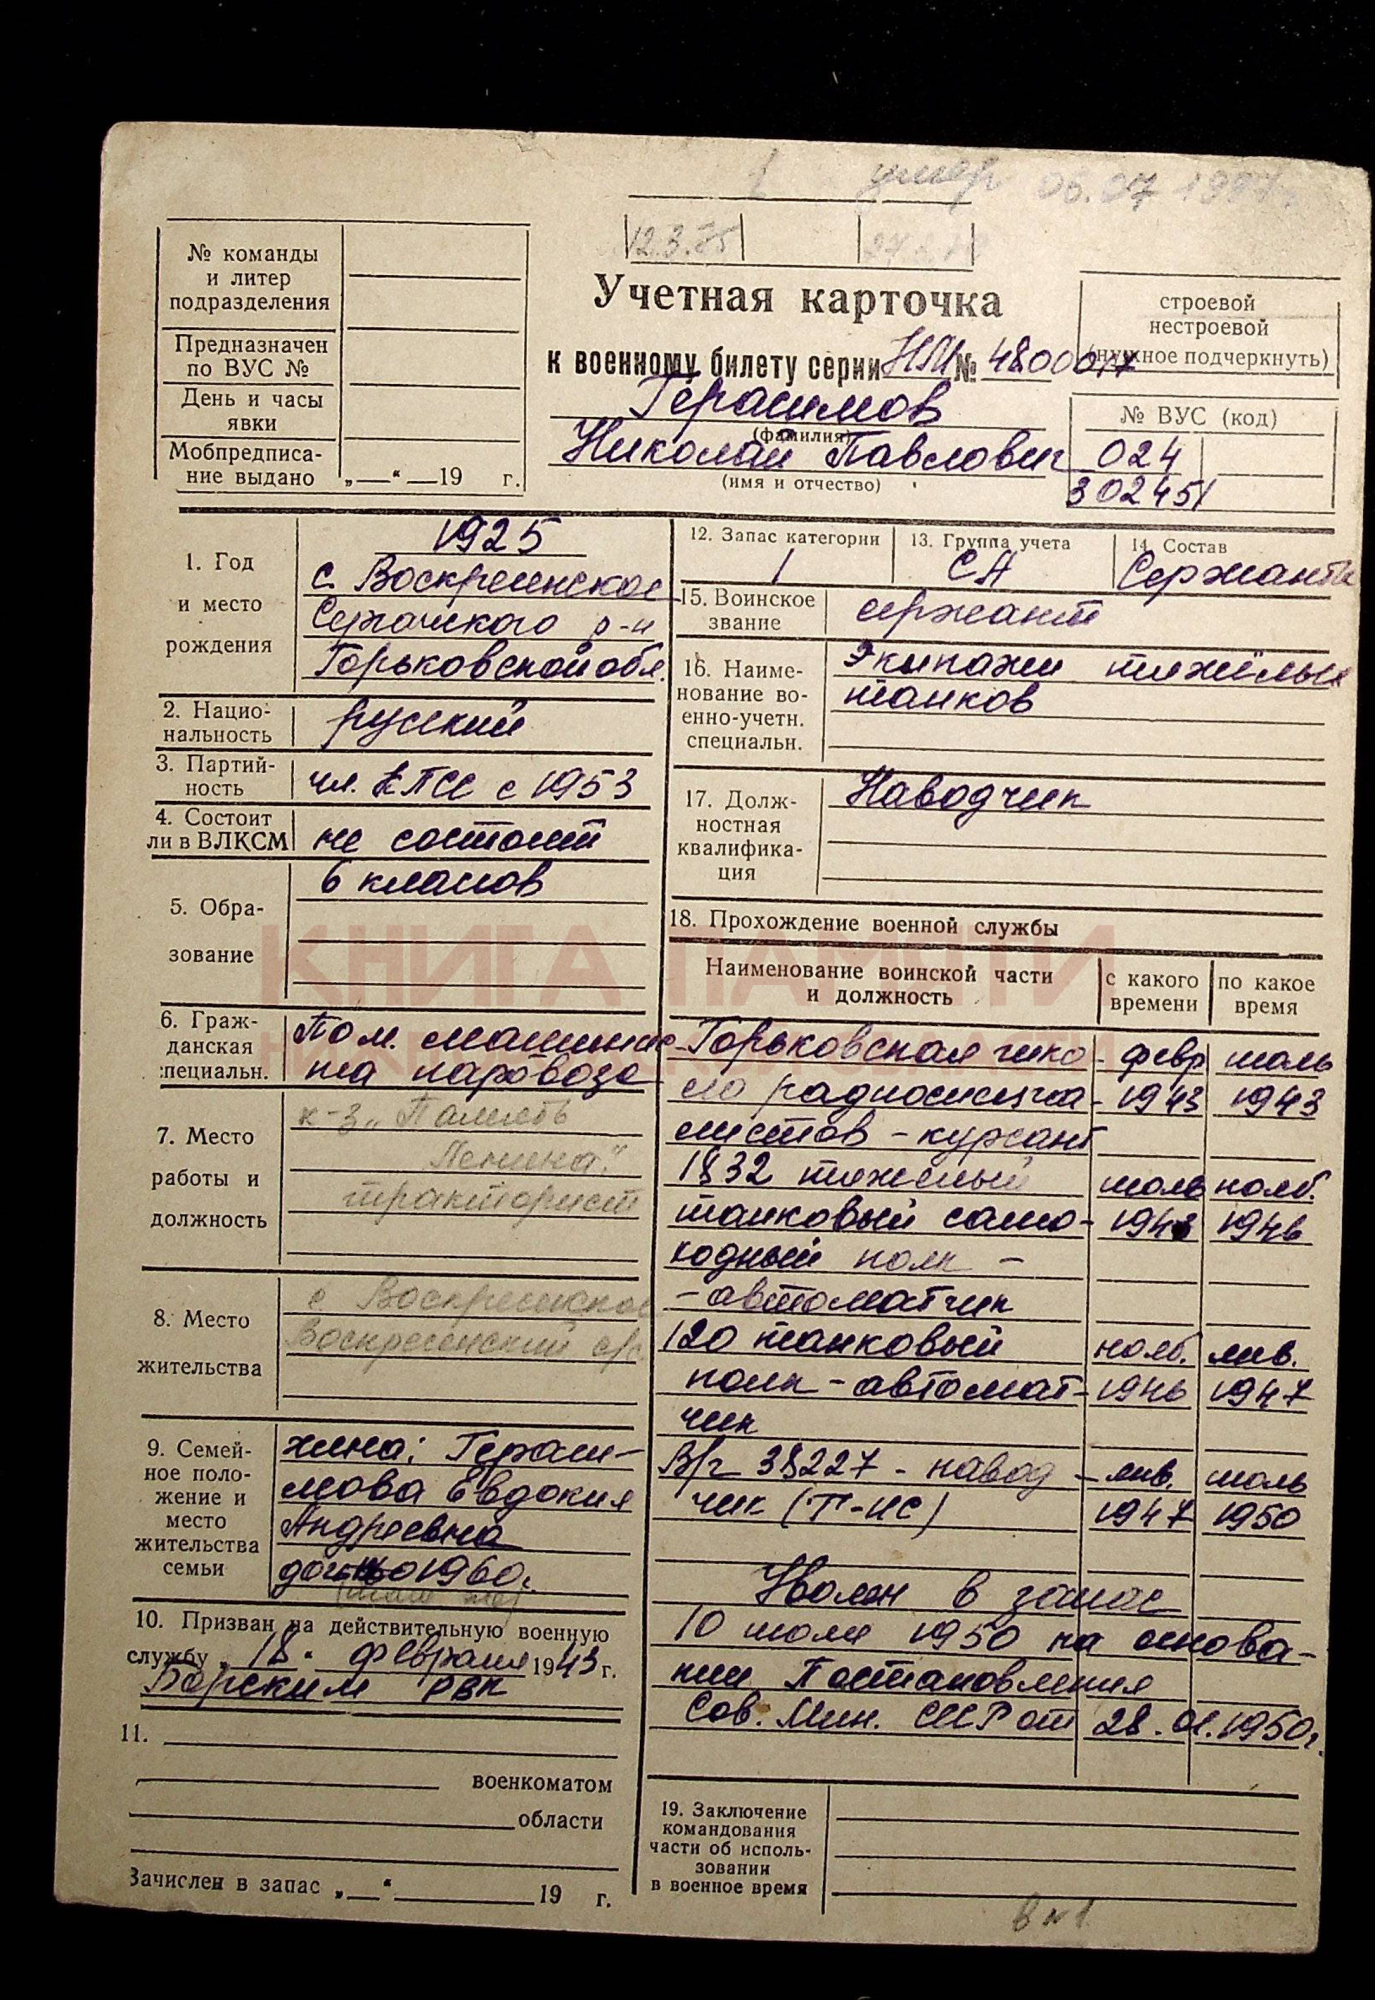 умер 06.07 1997г.
12.3.85
№ команды
и литер
подразделения
Предназначен
по ВУС №
День и часы
явки
Мобпредписа-
ние выдано „ “ 19 г.
Учетная карточка
к военному билету серии НМ № 4800077
Герасимов
(фамилия)
Николай Павлович
(имя и отчество)
строевой
нестроевой
(нужное подчеркнуть)
№ ВУС (код)
024
302451
1. Год
и место
рождения
1925
с. Воскресенское
Сергачского р-н
Горьковской обл.
2. Нацио-
нальность
русский
3. Партий-
ность
чл. КПСС с 1953
4. Состоит
ли в ВЛКСМ
не состоит
5. Обра-
зование
6 классов
6. Граж-
данская
специальн.
Пом. машинис-
та паровоза
7. Место
работы и
должность
к-з „Память
Ленина"
тракторист
8. Место
жительства
с Воскресенское
Воскресенский с/с.
9. Семей-
ное поло-
жение и
место
жительства
семьи
жена: Гераси-
мова Евдокия
Андреевна
1960г.
10. Призван на действительную военную
службу „ 18 “ февраля 1943 г.
Борским РВК
11.
военкоматом
области
Зачислен в запас „ “ 19 г.
12. Запас категории
1
13. Группа учета
СА
14. Состав
Сержанты
15. Воинское
звание
сержант
16. Наиме-
нование во-
енно-учетн.
специальн.
Экипажи тяжёлых
танков
17. Долж-
ностная
квалифика-
ция
Наводчик
18. Прохождение военной службы
Наименование воинской части
и должность
с какого
времени
по какое
время
Горьковская шко- февр июль
ла радиоспециа- 1943 1943
листов - курсант
1832 тяжелый июль нояб.
танковый само- 1943 1946
ходный полк -
- автоматчик
120 танковый нояб. янв.
полк - автомат- 1946 1947
чик
В/ч 38227 - навод- янв. июль
чик (Т-ИС) 1947 1950
Уволен в запас
10 июля 1950 на основа-
нии Постановления
Сов. Мин. СССР от 28.01.1950г.
19. Заключение
командования
части об исполь-
зовании
в военное время
КНИГА ПАМЯТИ
НИЖЕГОРОДСКОЙ ОБЛАСТИ